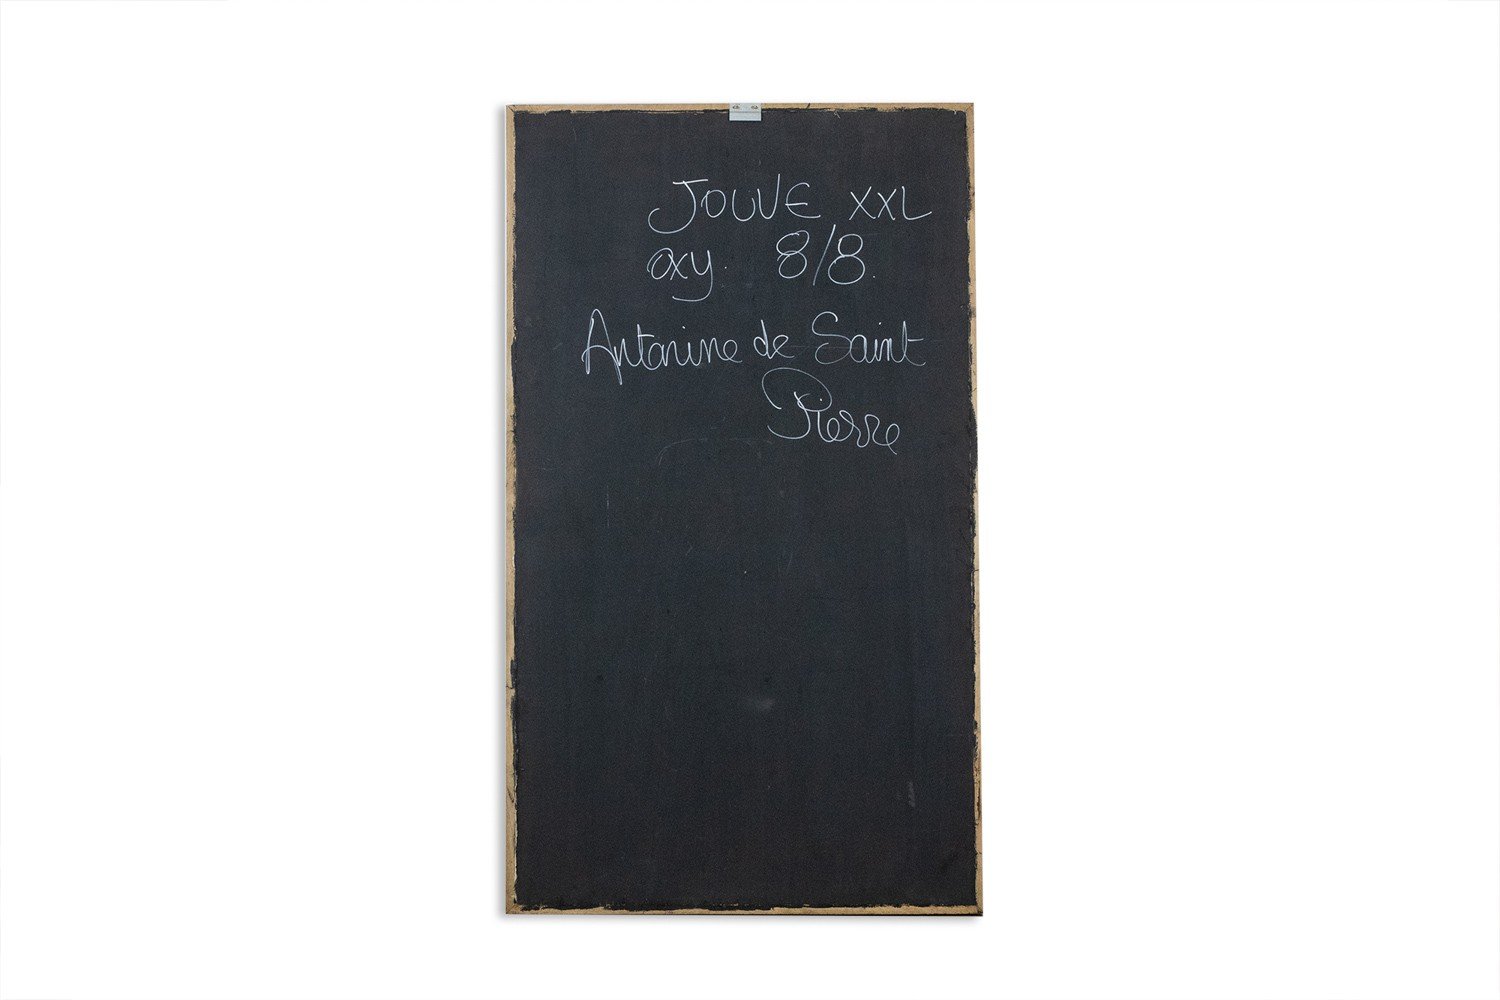 JOUVE XXL
oxy. 8/8.
Antonine de Saint
Pierre